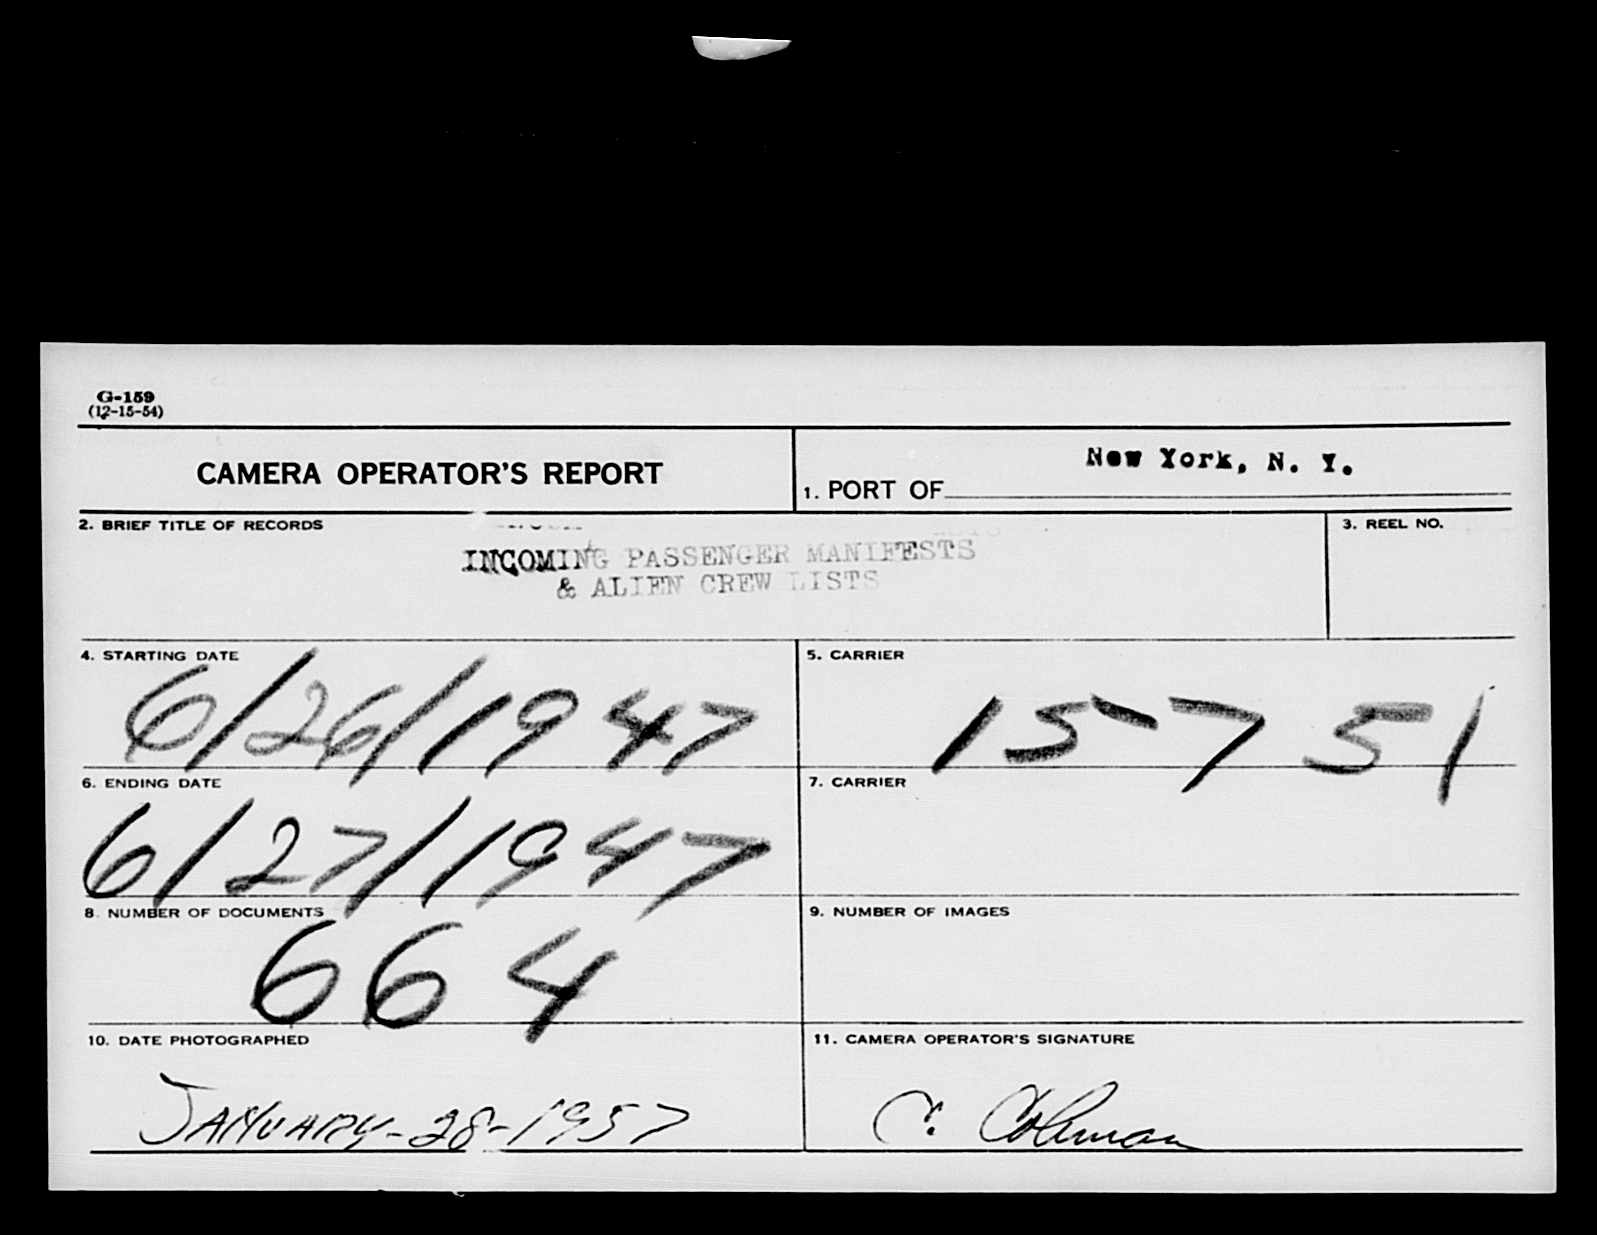 G-159
(12-15-54)
CAMERA OPERATOR'S REPORT
1. PORT OF New York, N. Y.
2. BRIEF TITLE OF RECORDS
INCOMING PASSENGER MANIFESTS
& ALIEN CREW LISTS
3. REEL NO.
4. STARTING DATE
6/26/1947
5. CARRIER
15751
6. ENDING DATE
6/27/1947
7. CARRIER
8. NUMBER OF DOCUMENTS
664
9. NUMBER OF IMAGES
10. DATE PHOTOGRAPHED
JANUARY-28-1957
11. CAMERA OPERATOR'S SIGNATURE
C. Colman